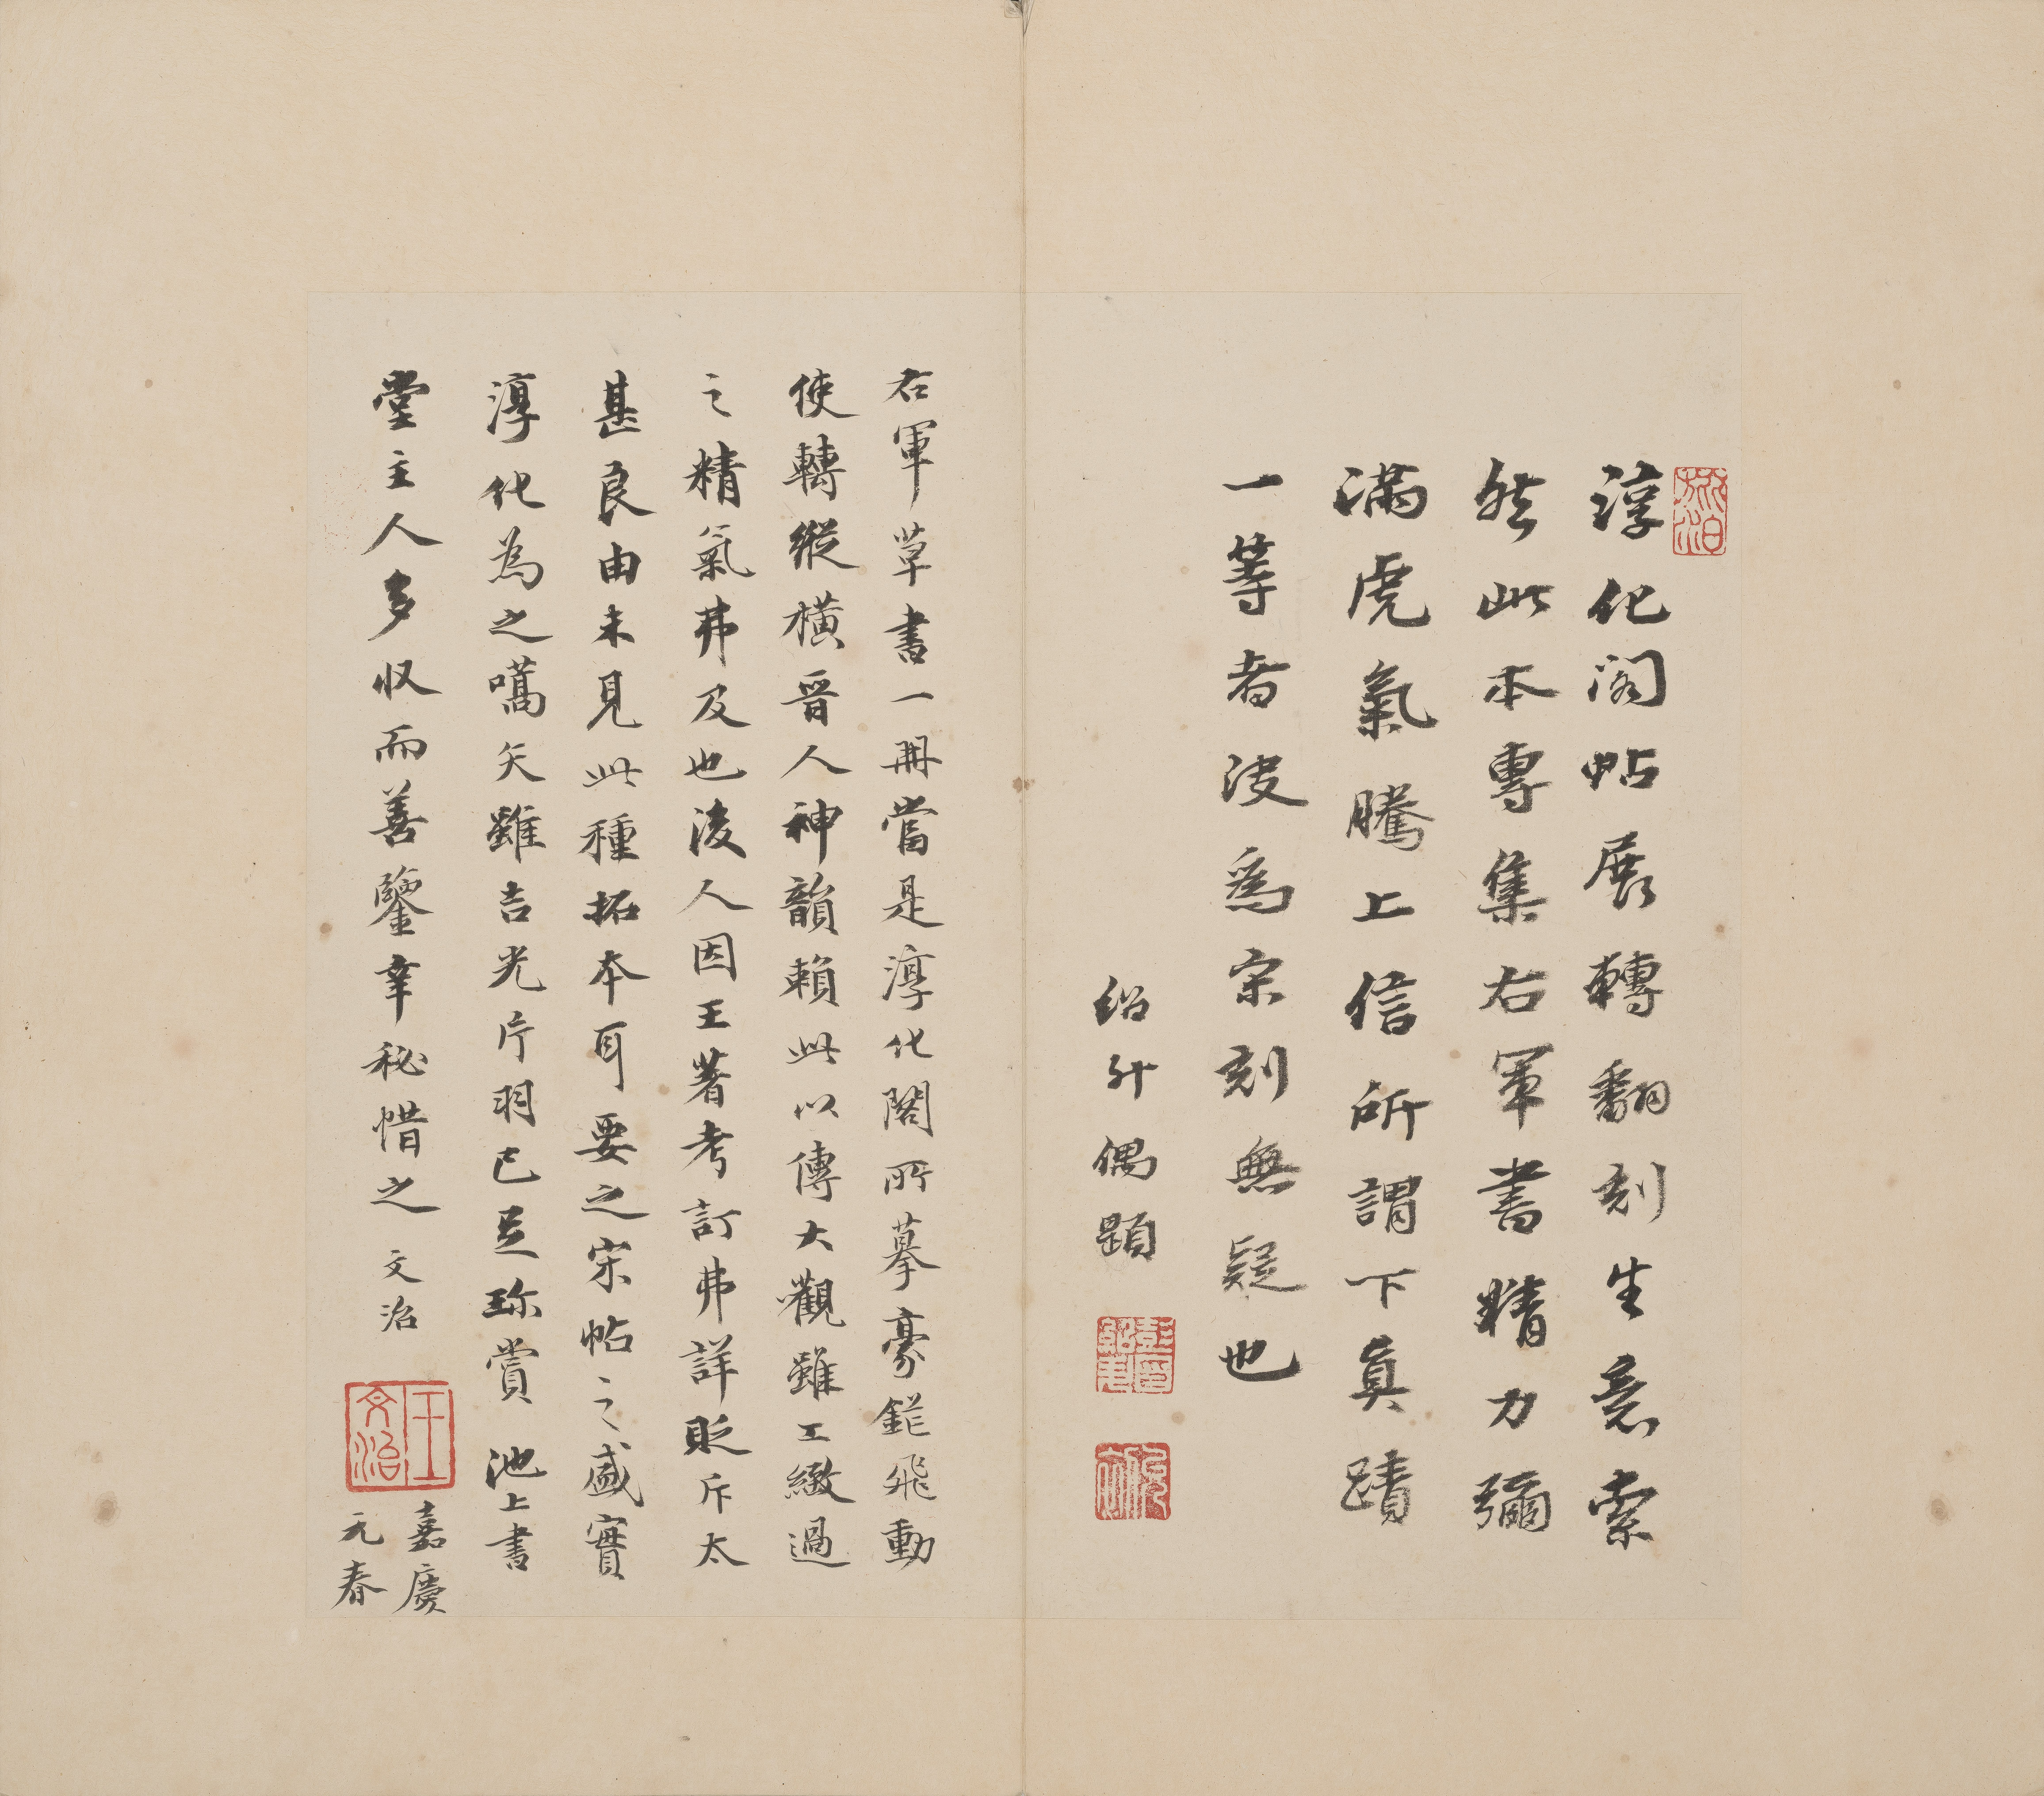 淳化閣帖展轉翻刻生意索
然此本專集右軍書精力彌
滿虎氣騰上信所謂下真蹟
一等者决為宋刻無疑也
紹升偶題
右軍草書一冊當是淳化閣所摹豪鋩飛動
使轉縱橫晉人神韻賴此以傳大觀雖工緻過
之精氣弗及也後人因王著考訂弗詳貶斥太
甚良由未見此種拓本耳要之宋帖之盛實
淳化為之嚆矢雖吉光片羽已足珎賞池上書
堂主人多収而善鑒幸秘惜之 文治
王文治
嘉慶
元春